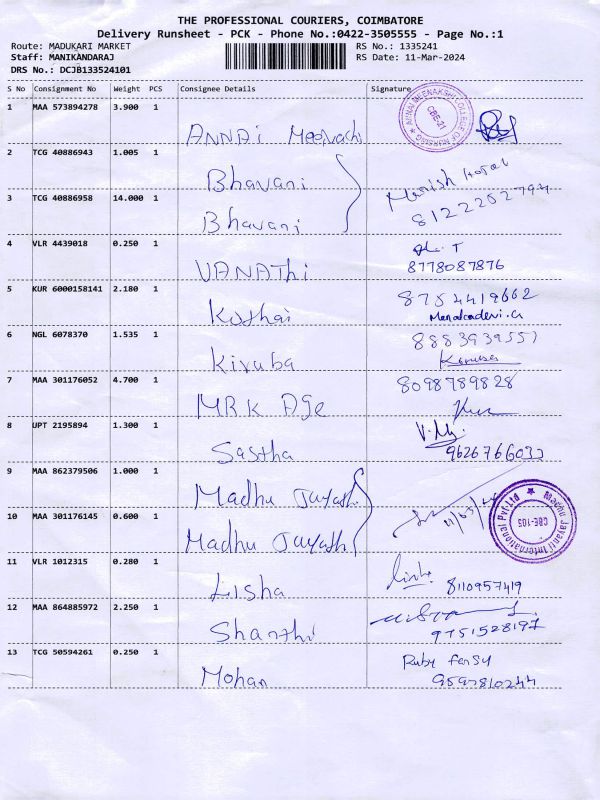 THE PROFESSIONAL COURIERS, COIMBATORE
Delivery Runsheet - PCK - Phone No.:0422-3505555 - Page No.:1
Route: MADUKARI MARKET
Staff: MANIKANDARAJ
DRS No.: DCJB133524101
RS No.: 1335241
RS Date: 11-Mar-2024
S No Consignment No Weight PCS Consignee Details Signature
1 MAA 573894278 3.900 1 ANNAi Meenachi
ANNAI MEENAKSHI COLLEGE OF NURSING CBE-21
2 TCG 40886943 1.005 1 Bhavani
3 TCG 40886958 14.000 1 Bhavani
8122252794
4 VLR 4439018 0.250 1 VANAThi
8778087876
5 KUR 6000158141 2.180 1 Kothai
8754419662
Menakadevi.G
6 NGL 6078370 1.535 1 Kiruba
8883939557
7 MAA 301176052 4.700 1 MRK Age
8098789828
8 UPT 2195894 1.300 1 Sastha
9626766033
9 MAA 862379506 1.000 1 Madhu Jayath
10 MAA 301176145 0.600 1 Madhu Jayath
Madhu Jayanti International Pvt Ltd CBE-105
11 VLR 1012315 0.280 1 Lisha
8110957419
12 MAA 864885972 2.250 1 Shanthi
9751528197
13 TCG 50594261 0.250 1 Mohan
Ruby fansy
9597810244